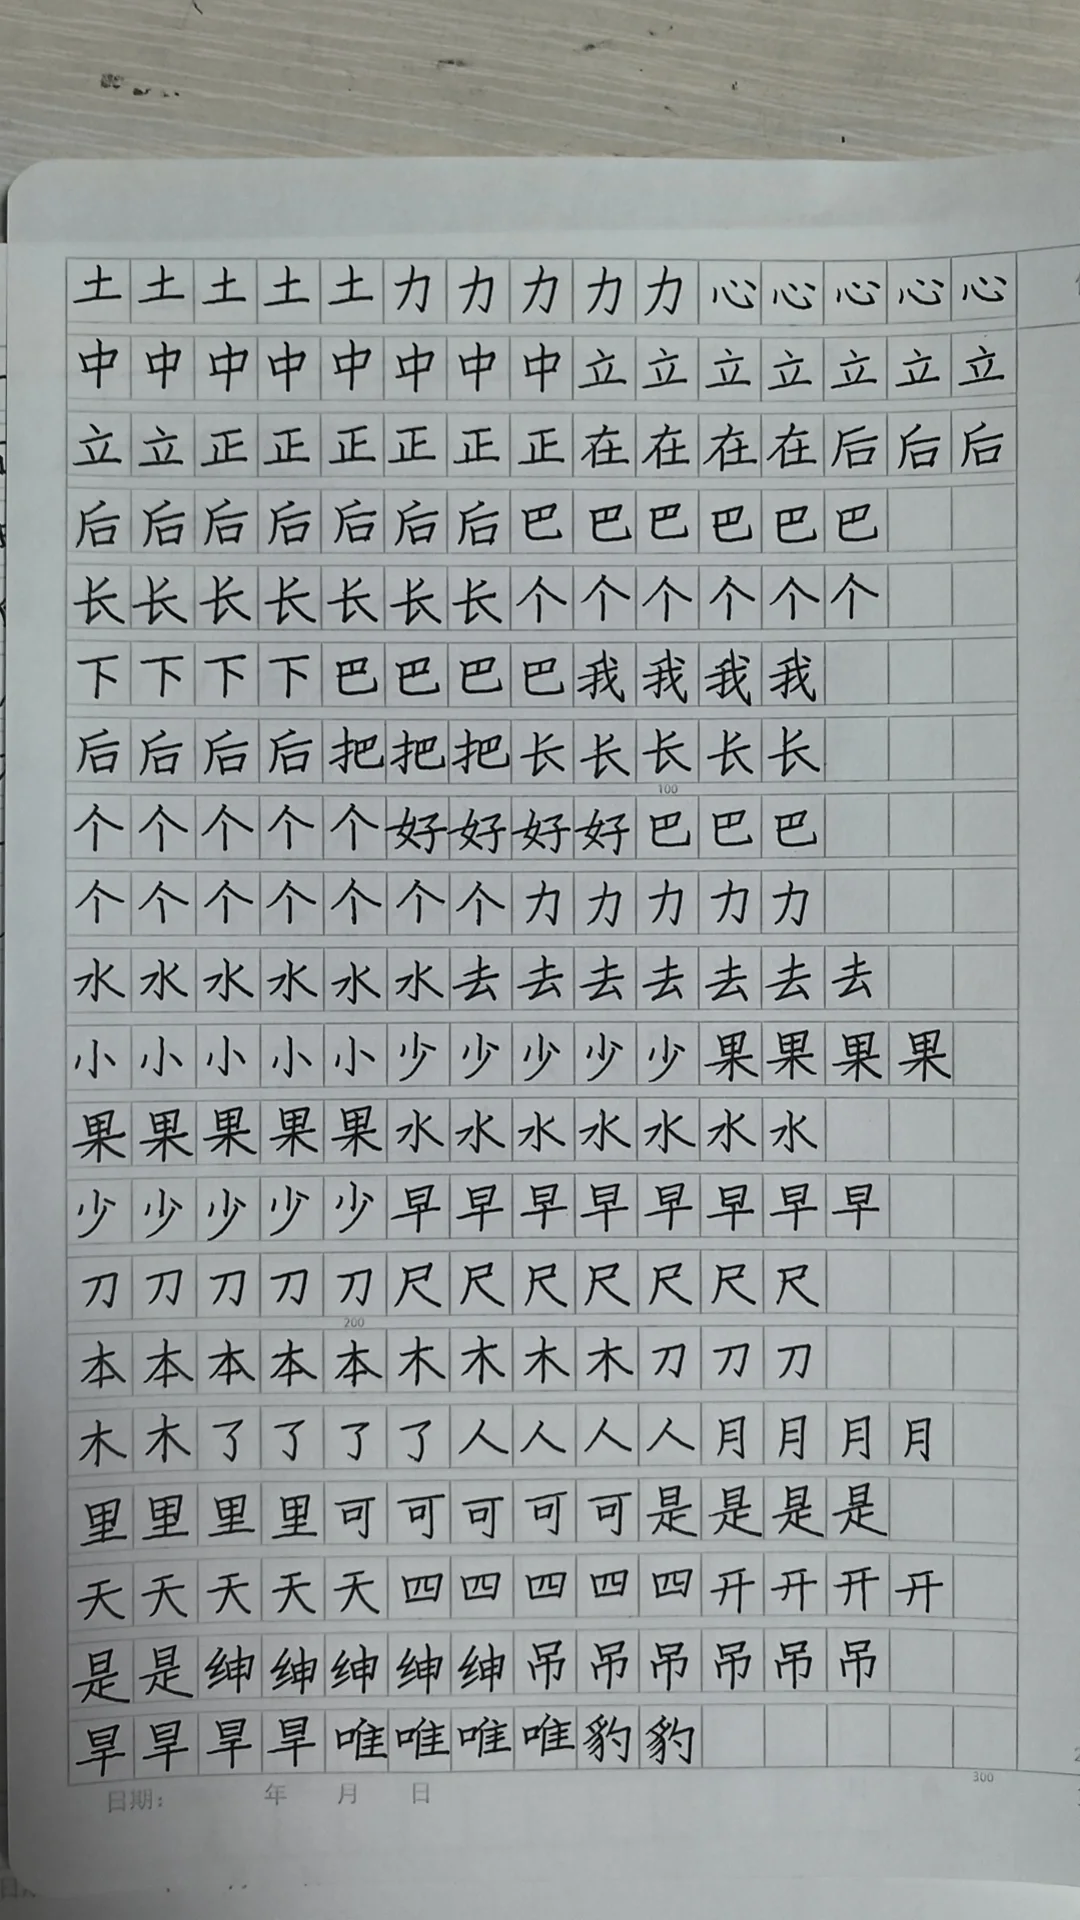 土土土土土力力力力力心心心心心
中中中中中中中中立立立立立立立
立立正正正正正正在在在在后后后
后后后后后后后巴巴巴巴巴巴
长长长长长长长个个个个个个
下下下下巴巴巴巴我我我我
后后后后把把把长长长长长
100
个个个个个好好好好巴巴巴
个个个个个个个力力力力力
水水水水水水去去去去去去去
小小小小小少少少少少果果果果
果果果果果水水水水水水水
少少少少少早早早早早早早早
刀刀刀刀刀尺尺尺尺尺尺尺
200
本本本本本木木木木刀刀刀
木木了了了了人人人人月月月月
里里里里可可可可可是是是是
天天天天天四四四四四开开开开
是是绅绅绅绅绅吊吊吊吊吊吊
旱旱旱旱唯唯唯唯豹豹
300
日期： 年 月 日